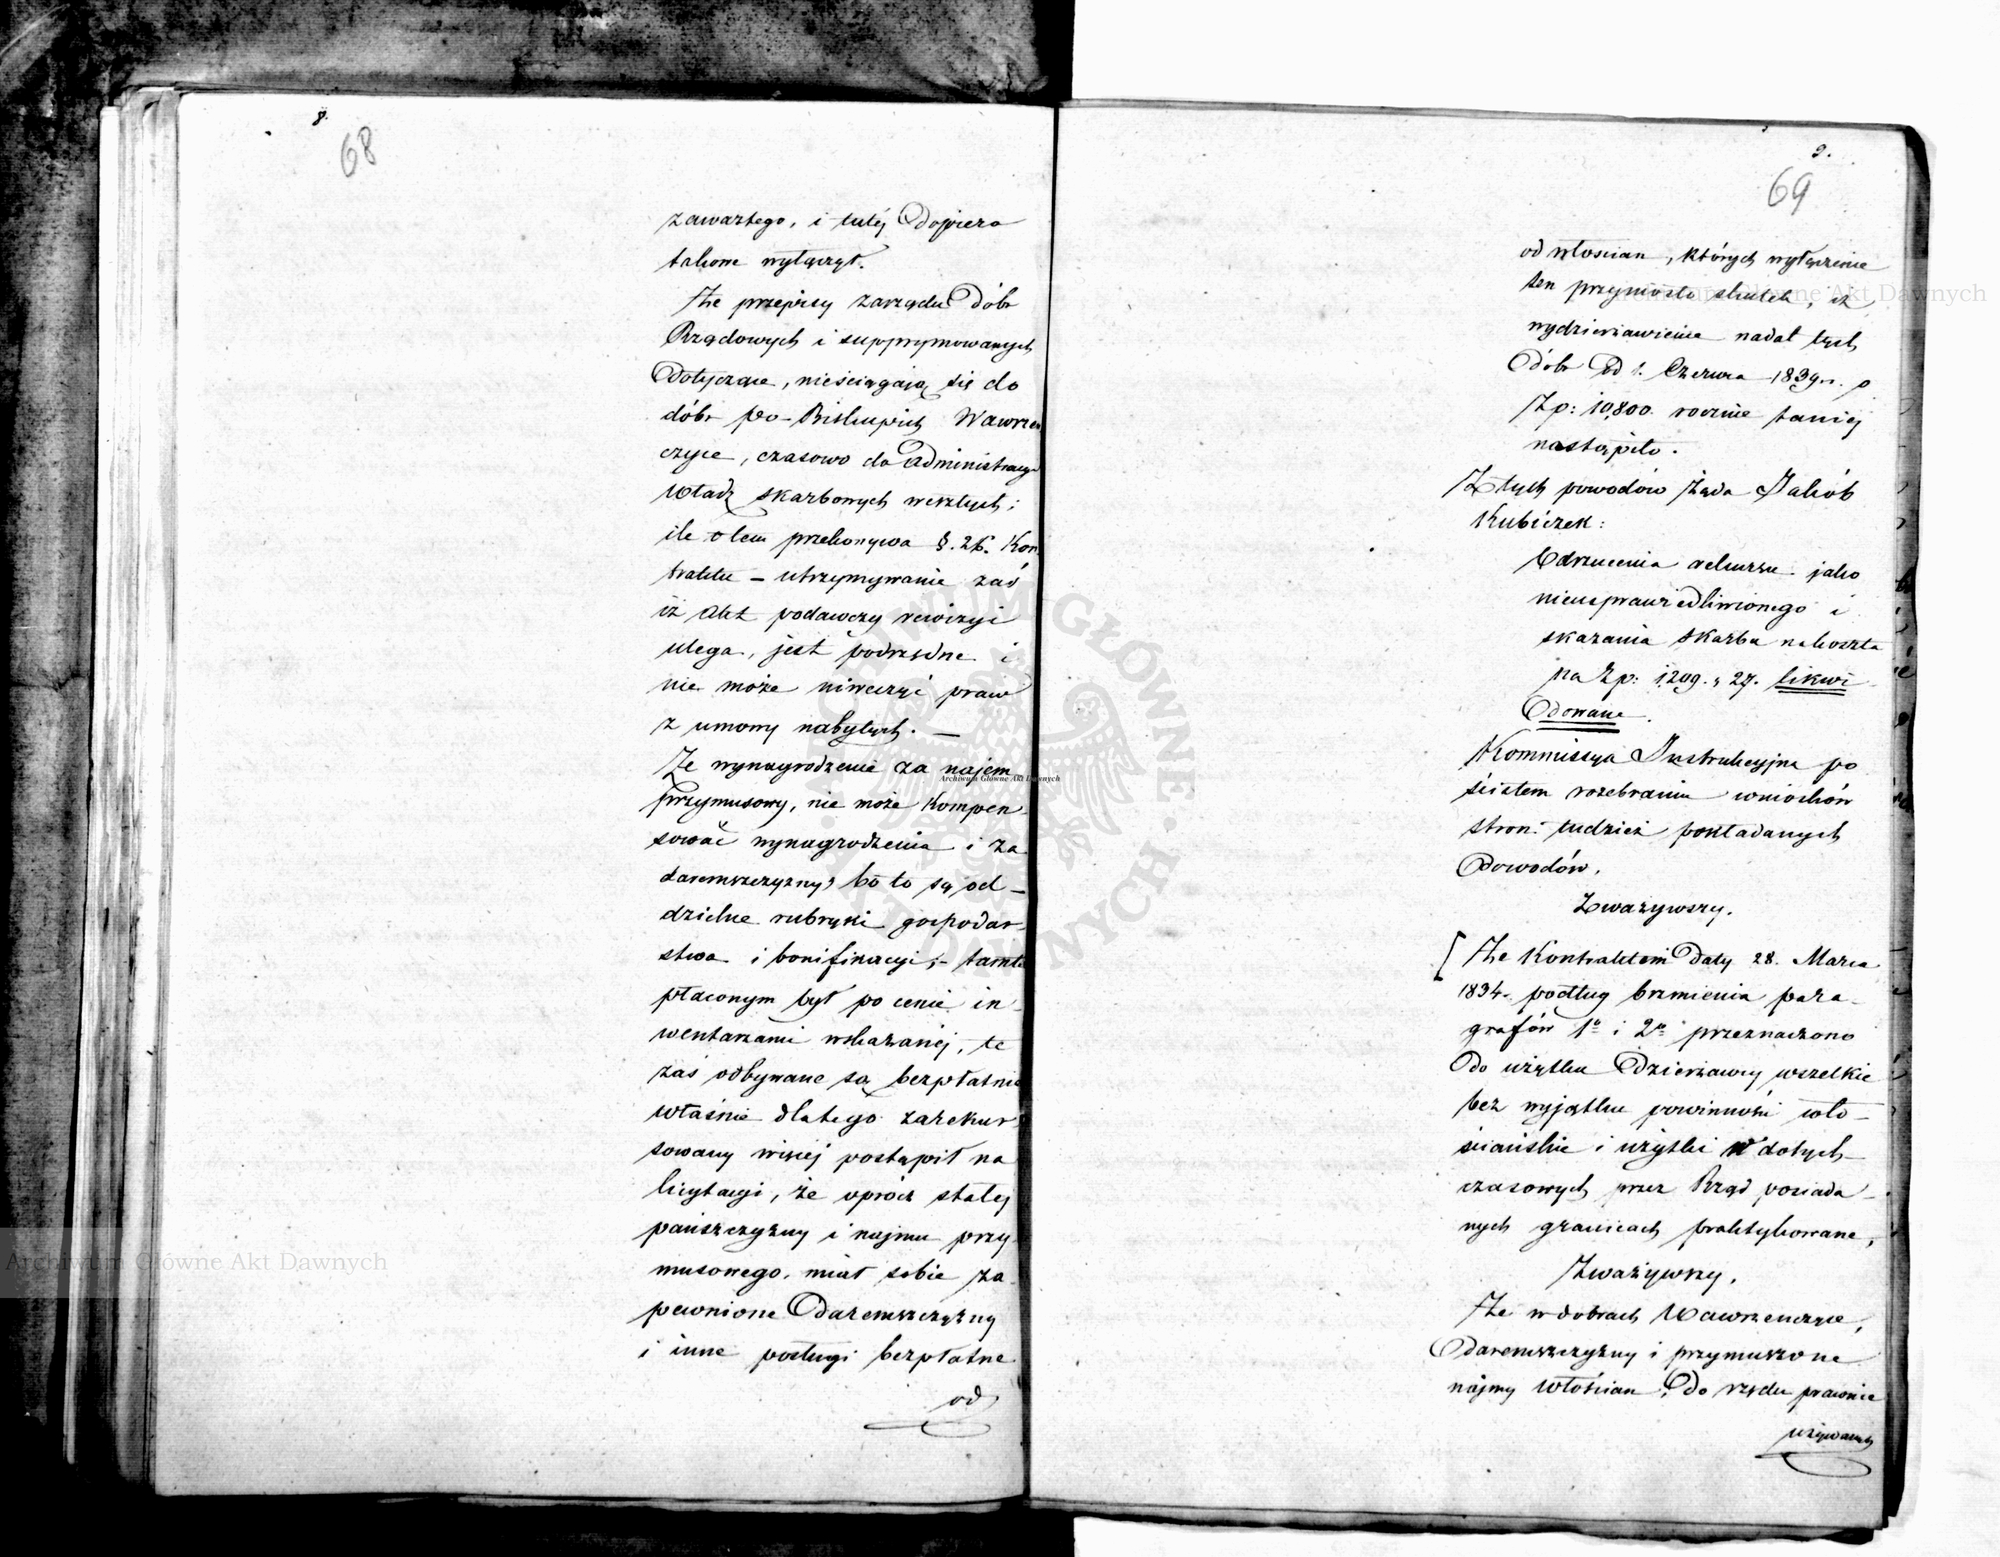 8.
68
zawartego, i tutéj dopiero
takowe wyłączył.
Że przepisy zarządu dóbr
Rządowych i supprymowanych
dotyczące, nieściągają się do
dóbr po-Biskupich Wawrzen
czyce, czasowo do administracyi
Władz skarbowych weszłych;
ile o tem przekonywa §. 26. Kon
traktu – utrzymywanie zaś
iż Akt podawczy rewizyi
ulega, jest podrzędne i
nie może niweczyć praw
z umowy nabytych. —
Że wynagrodzenie za najem
przymusowy, nie może kompen-
sować wynagrodzenia i za
daremszczyzny, bo to są od-
dzielne rubryki gospodar-
stwa i bonifikacyi; – tamte
płaconym był po cenie in-
wentarzami wskazanéj, te
zaś odbywane są bezpłatnie
właśnie dlatego zarekur-
sowany więcéj postąpił na
licytacyi, że oprócz stałej
pańszczyzny i najmu przy
musowego, miał sobie za-
pewnione daremszczyzny
i inne posługi bezpłatne
od
9.
69
od włościan, których wyłączenie
ten przyniosło skutek, iż
wydzierżawienie nadal tych
dóbr od 1. Czerwca 1839 r. o
Zp: 10,800. rocznie taniéj
nastąpiło.
Z tych powodów żąda Jakób
Kubiczek:
Odrzucenia rekursu jako
nieusprawiedliwionego i
skazania Skarbu na koszta
na Zp: 1209. „ 27. likwi-
dowane.
Kommissya Instrukcyjna po
ścisłem rozebraniu wniosków
stron: tudzież pokładanych
dowodów.
Zważywszy.
[ Że Kontraktem daty 28. Marca
1834. podług brzmienia para-
grafów 1o i 2o przeznaczono
do użytku dzierżawcy wszelkie
bez wyjątku powinności wło-
ściańskie i użytki w dotych-
czasowych przez Rząd posiada-
nych granicach praktykowane,
Zważywszy,
Że w dobrach Wawrzenczyce,
daremszczyzny i przymuszone
najmy Włościan, do rzędu prawnie
używanych
Archiwum Główne Akt Dawnych